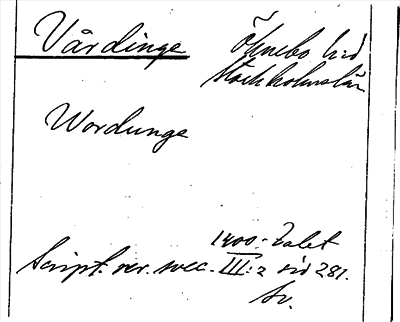 Vårdinge
Öknebo hd
Stockholms län
Wordunge
1400-talet
Script. rer. svec. III:2 sid 281.
Sv.